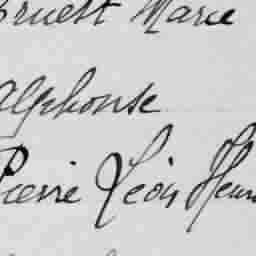 Ernest Marie
Alphonse
Pierre Léon Henri